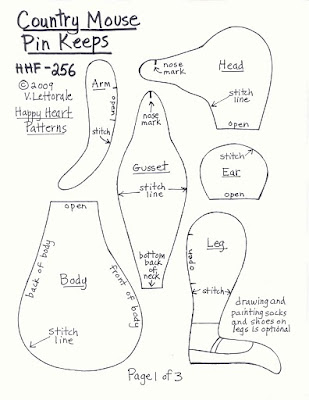 Country Mouse
Pin Keeps
HHF-256
© 2009
V. Lettorale
Happy Heart
Patterns
Arm
open
stitch
nose
mark
Head
stitch
line
open
nose
mark
Gusset
stitch
line
bottom
back of
neck
stitch
Ear
open
open
back of body
front of body
Body
stitch
line
Leg
open
stitch
drawing and
painting socks
and shoes on
legs is optional
Page 1 of 3